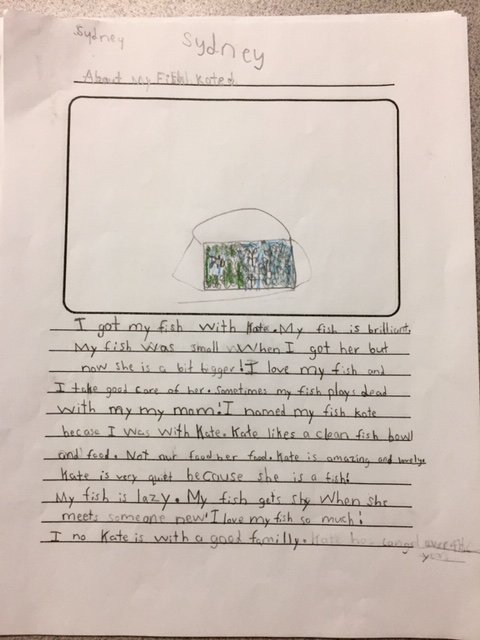 Sydney
Sydney
About My Fish Kate
I got my fish with Kate. My fish is brilliant.
My fish was small when I got her but
now she is a bit bigger! I love my fish and
I take good care of her. Sometimes my fish plays dead
with my my mom! I nomed my fish kate
becase I was with Kate. Kate likes a clean fish bowl
and food. Not our food her food. Kate is amazing and lovely.
Kate is very quiet because she is a fish!
My fish is lazy. My fish gets shy when she
meets someone new! I love my fish so much!
I no Kate is with a good familly. Kate has over the